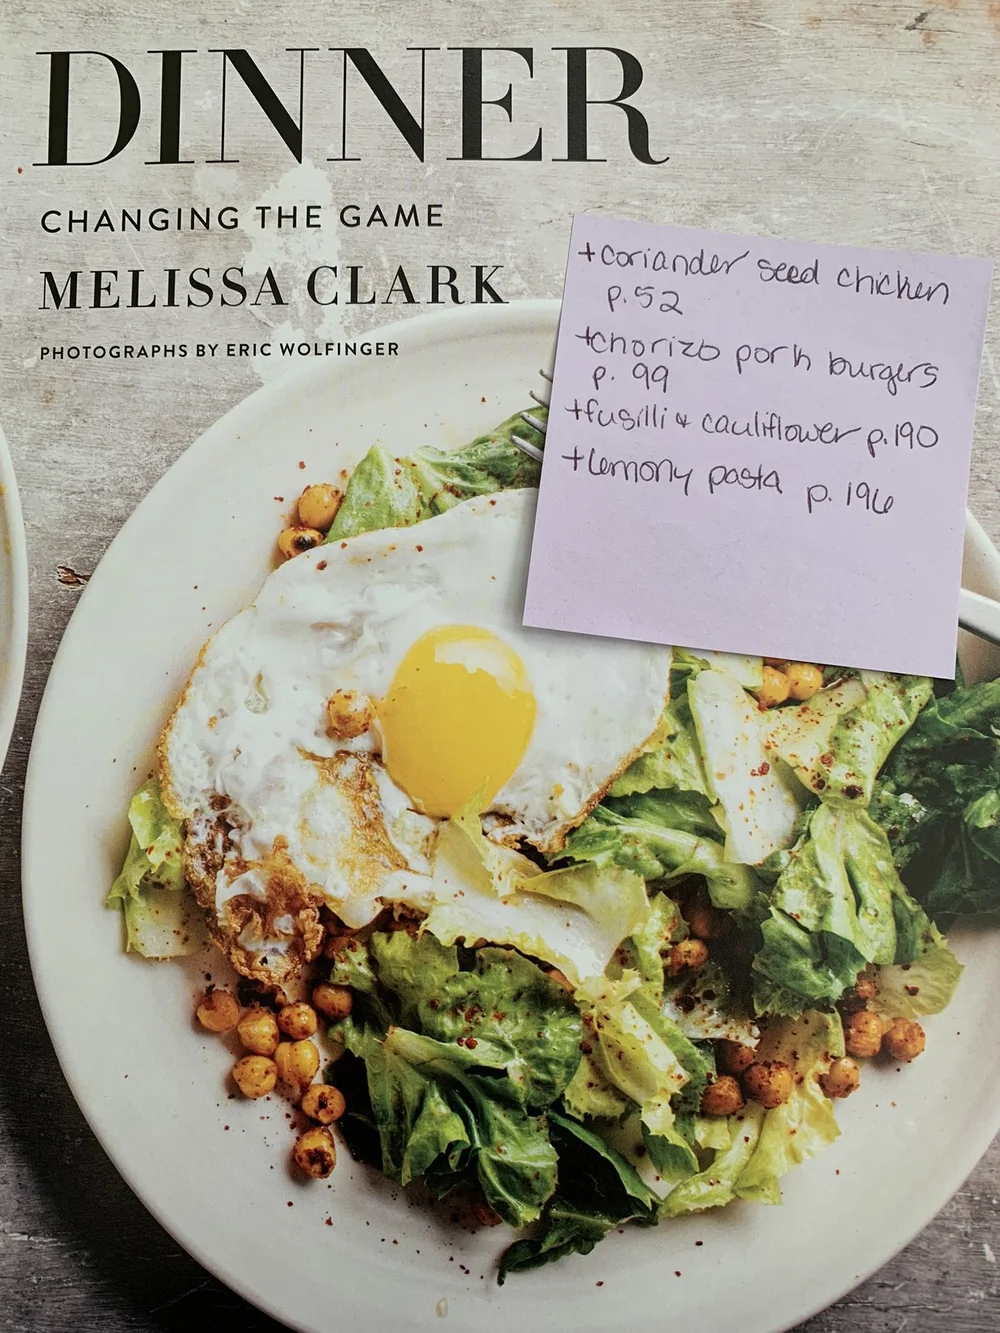 DINNER
CHANGING THE GAME
MELISSA CLARK
PHOTOGRAPHS BY ERIC WOLFINGER
+coriander seed chicken
p.52
+chorizo pork burgers
p. 99
+fusilli & cauliflower p.190
+lemony pasta p. 196